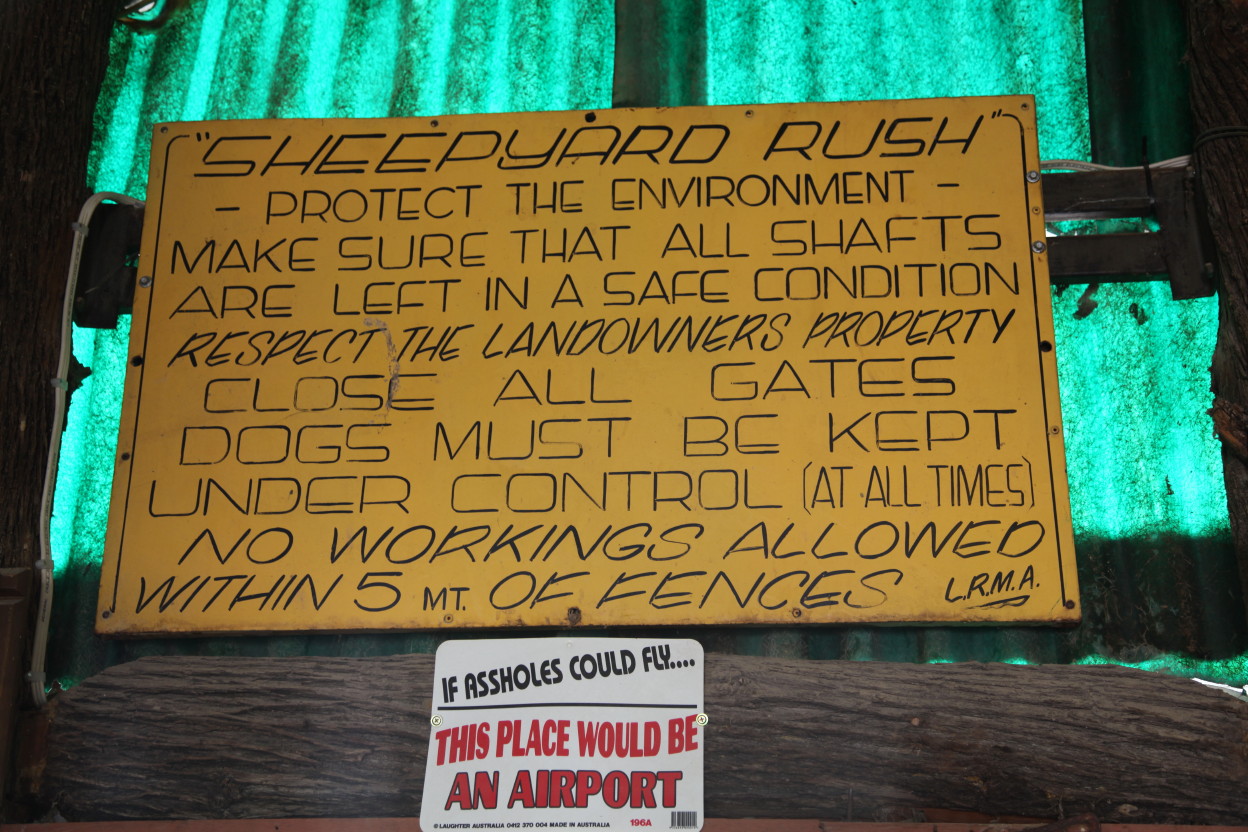 "SHEEPYARD RUSH"
- PROTECT THE ENVIRONMENT -
MAKE SURE THAT ALL SHAFTS
ARE LEFT IN A SAFE CONDITION
RESPECT THE LANDOWNERS PROPERTY
CLOSE ALL GATES
DOGS MUST BE KEPT
UNDER CONTROL (AT ALL TIMES)
NO WORKINGS ALLOWED
WITHIN 5 MT. OF FENCES L.R.M.A.
IF ASSHOLES COULD FLY....
THIS PLACE WOULD BE
AN AIRPORT
© LAUGHTER AUSTRALIA 0412 370 004 MADE IN AUSTRALIA 196A